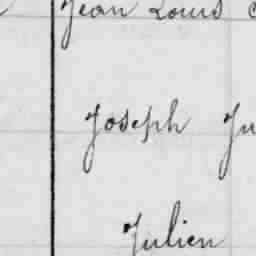 Jean Louis
Joseph Ju
Julien